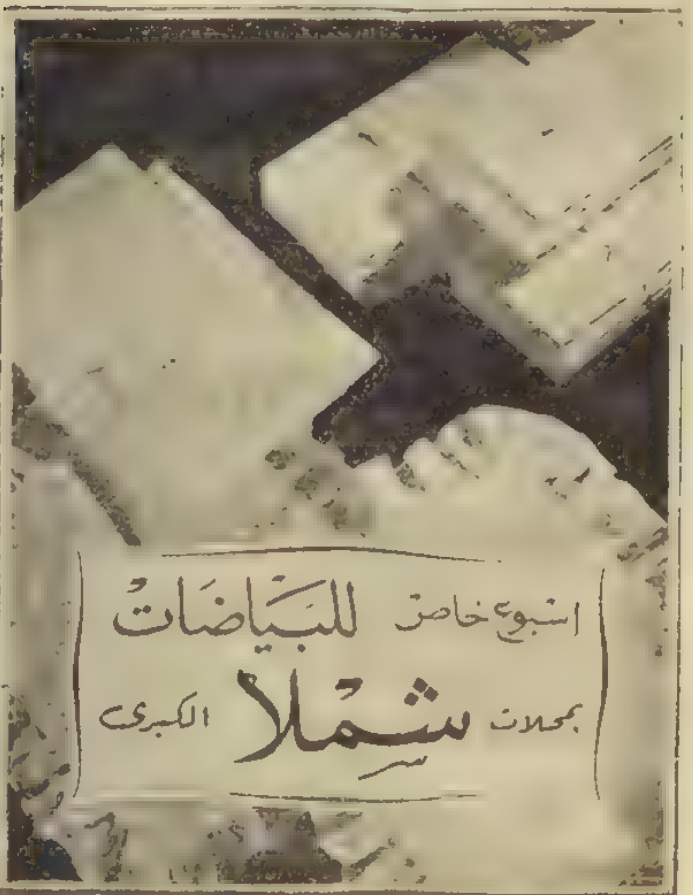 اسبوع خاص للبَيَاضَات
بمحلات شِملا الكبرى